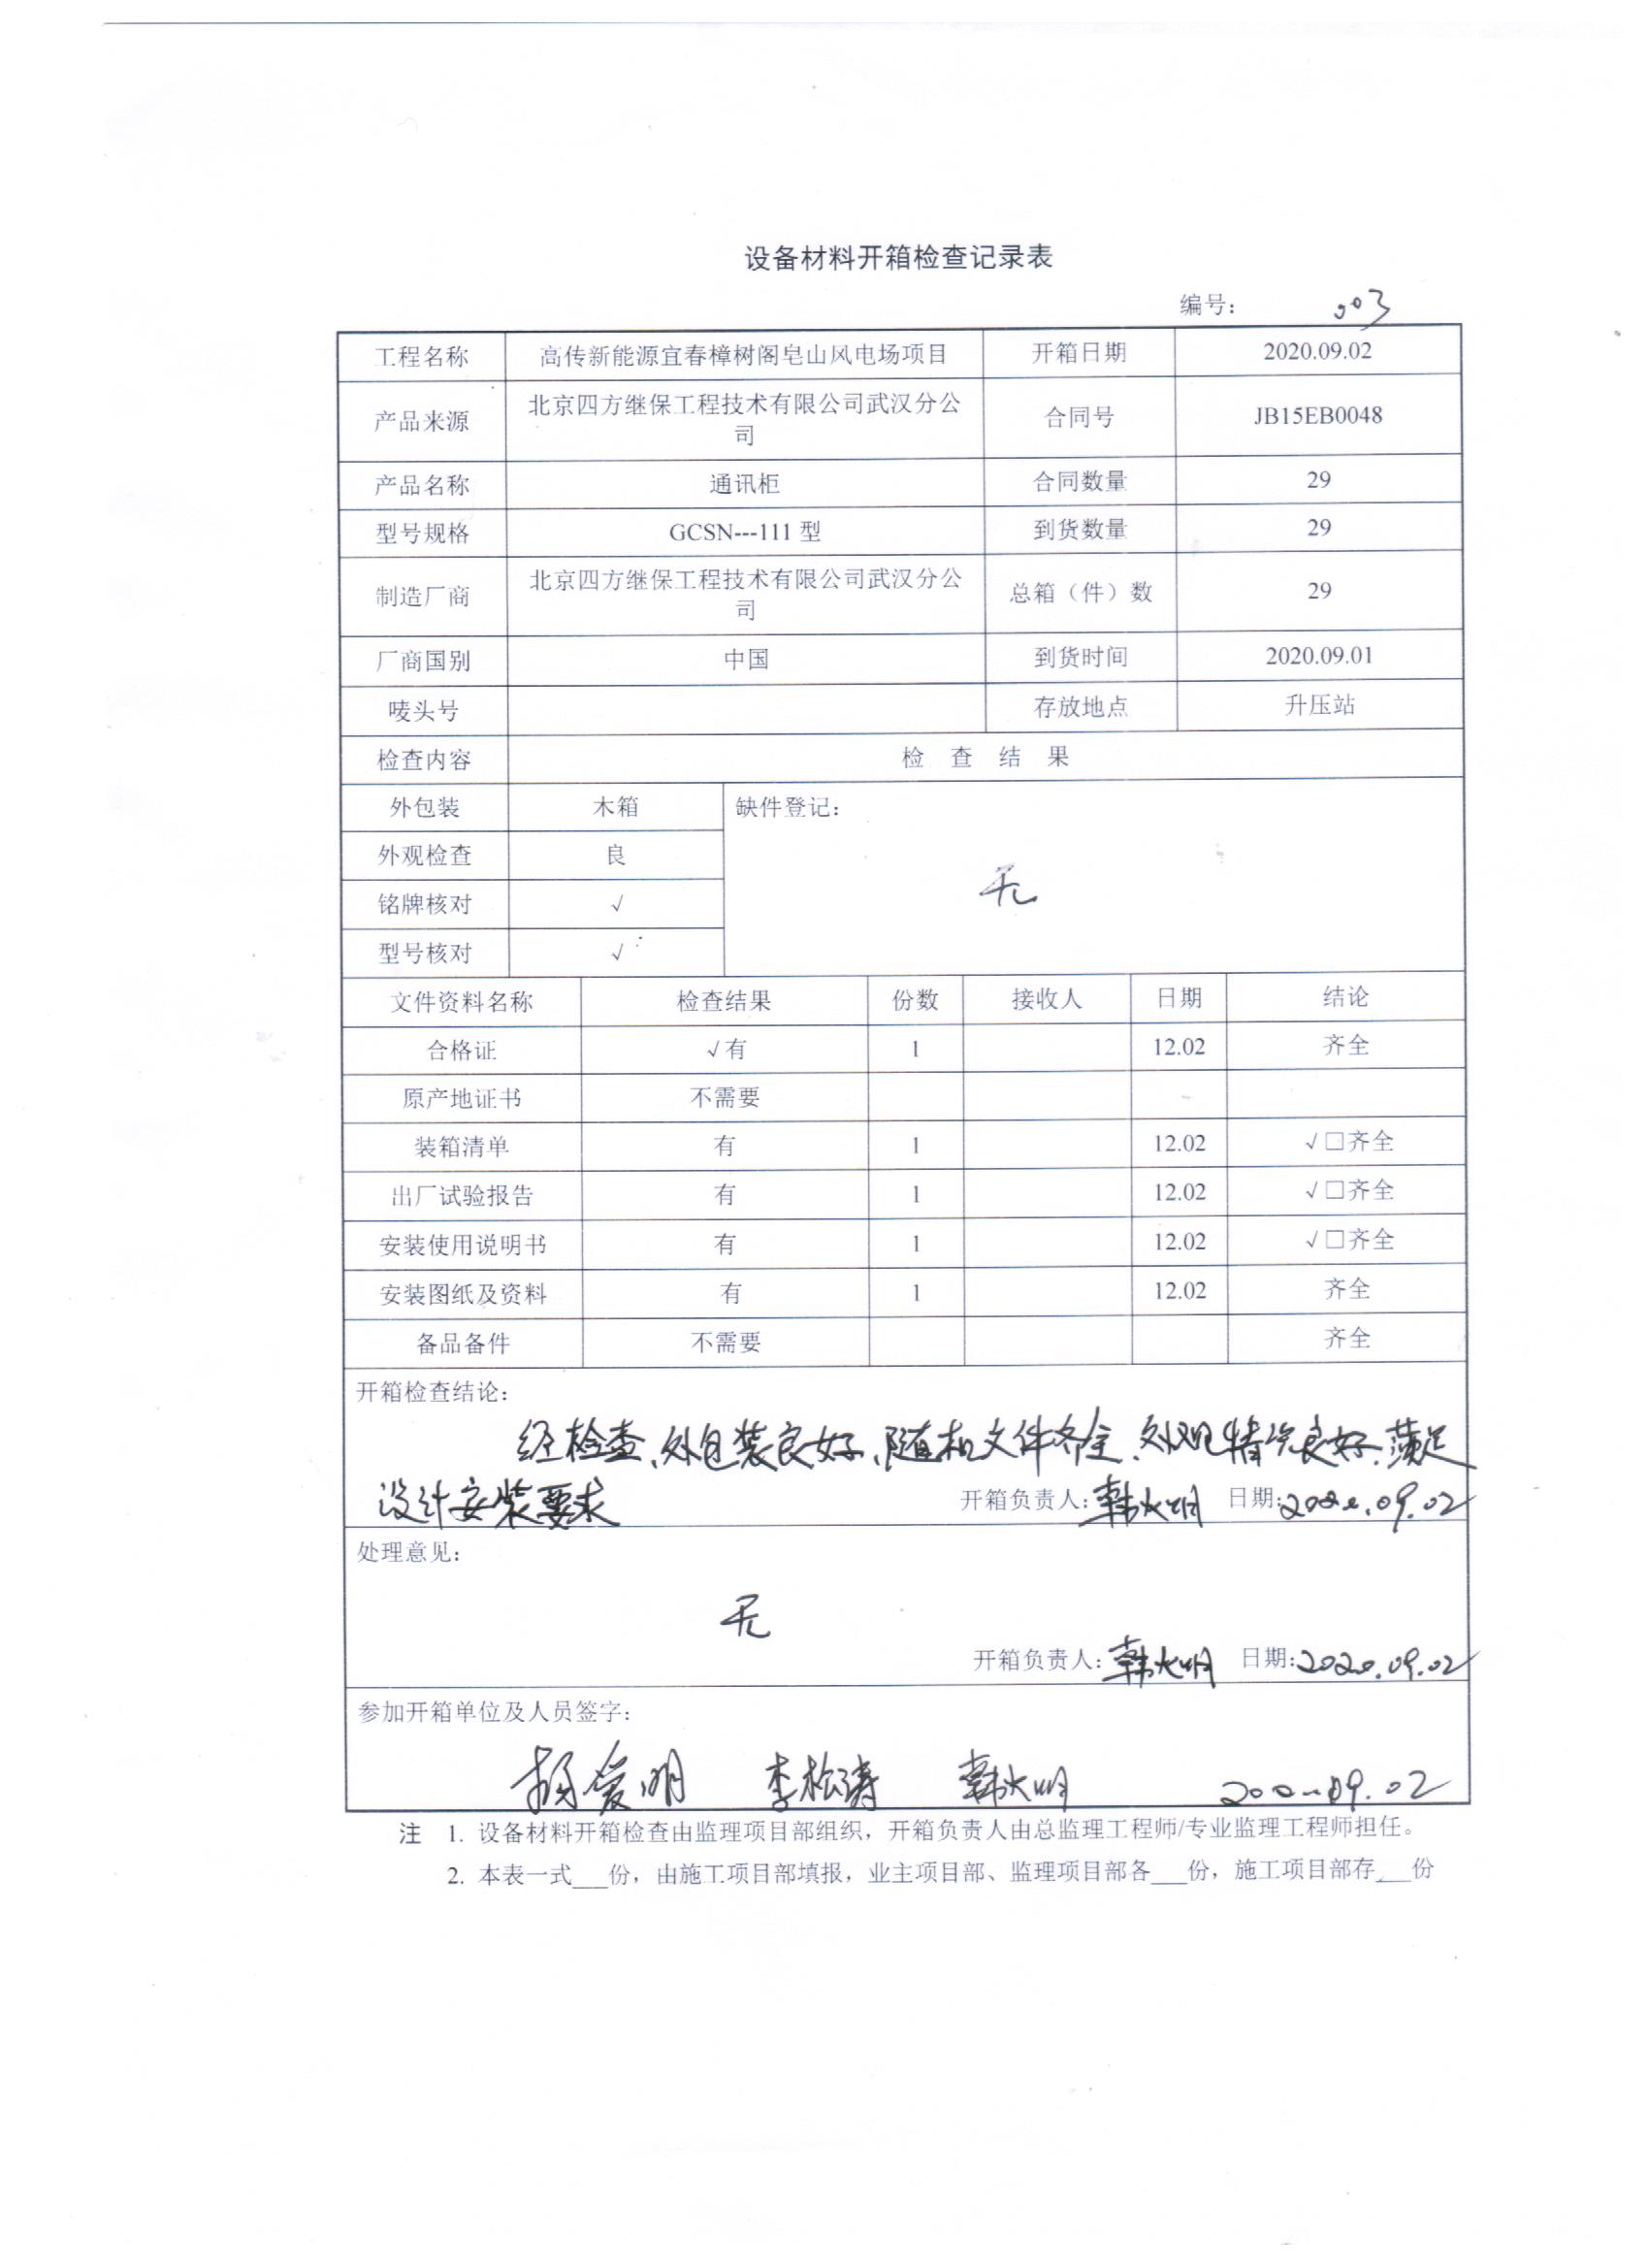 设备材料开箱检查记录表
编号： 003
工程名称 高传新能源宜春樟树阁皂山风电场项目 开箱日期 2020.09.02
产品来源 北京四方继保工程技术有限公司武汉分公
司 合同号 JB15EB0048
产品名称 通讯柜 合同数量 29
型号规格 GCSN---111 型 到货数量 29
制造厂商 北京四方继保工程技术有限公司武汉分公
司 总箱（件）数 29
厂商国别 中国 到货时间 2020.09.01
唛头号 存放地点 升压站
检查内容 检 查 结 果
外包装 木箱 缺件登记：
外观检查 良
无
铭牌核对 √
型号核对 √
文件资料名称 检查结果 份数 接收人 日期 结论
合格证 √有 1 12.02 齐全
原产地证书 不需要
装箱清单 有 1 12.02 √□齐全
出厂试验报告 有 1 12.02 √□齐全
安装使用说明书 有 1 12.02 √□齐全
安装图纸及资料 有 1 12.02 齐全
备品备件 不需要 齐全
开箱检查结论：
经检查、外包装良好、随机文件齐全、外观情况良好、满足
设计安装要求 开箱负责人： 日期：2020.09.02
处理意见：
无
开箱负责人： 日期：2020.09.02
参加开箱单位及人员签字：
李松涛 09.02
注 1. 设备材料开箱检查由监理项目部组织，开箱负责人由总监理工程师/专业监理工程师担任。
2. 本表一式___份，由施工项目部填报，业主项目部、监理项目部各___份，施工项目部存___份